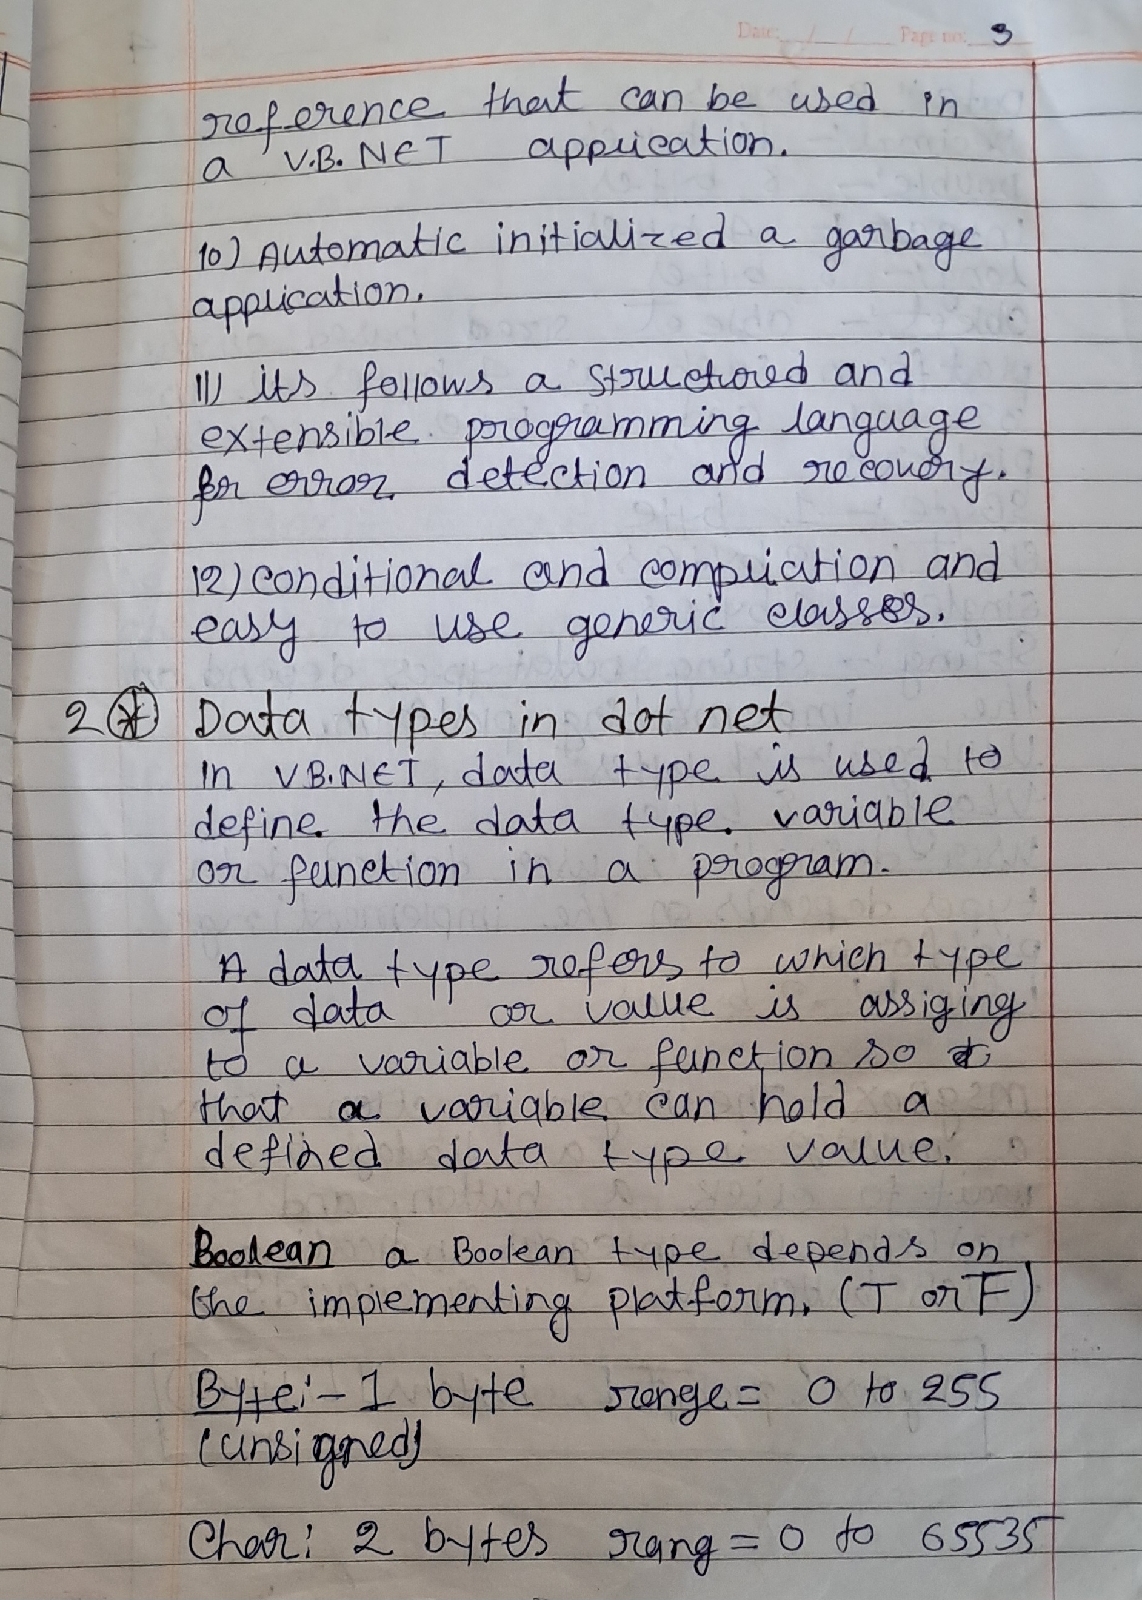 Date: / / Page no: 3
reference that can be used in
a V.B. NET application.
10) Automatic initialized a garbage
application.
11) its follows a structured and
extensible programming language
for error detection and recovery.
12) conditional and compliation and
easy to use generic classes.
2 * Data types in dot net
In VB.NET, data type is used to
define the data type. variable
or function in a program.
A data type refers to which type
of data or value is assiging
to a variable or function so
that a variable can hold a
defined data type value.
Boolean a Boolean type depends on
the implementing platform. (T or F)
Byte:- 1 byte range = 0 to 255
(unsigned)
Char: 2 bytes rang = 0 to 65535